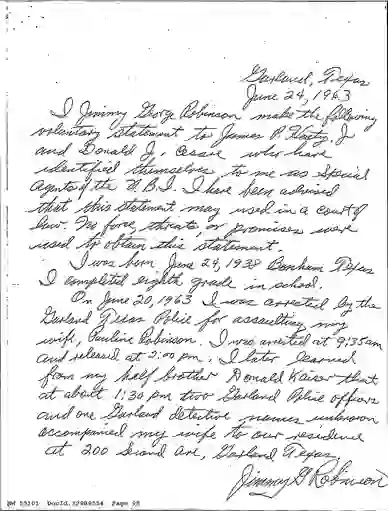 Garland, Texas
June 24, 1963
I Jimmy George Robinson make the following
voluntary statement to James P. Hosty, Jr
and Donald J. who have
identified themselves to me as special
agents of the F.B.I. I have been advised
that this statement may used in a court of
law. No force, threats, or promises were
used to obtain this statement.
I was born June 29, 1938 Bonham Texas
I completed eighth grade in school.
On June 20, 1963 I was arrested by the
Garland Texas Police for assaulting my
wife, Pauline Robinson. I was arrested at 9:35am
and released at 2:00 pm. I later learned
from my half brother Donald Kaiser that
at about 1:30 pm two Garland Police officers
and one Garland detective names unknown
accompanied my wife to our residence
at 200 Second Ave, Garland, Texas,
Jimmy G Robinson
NW 55201 DocId:32989554 Page 95